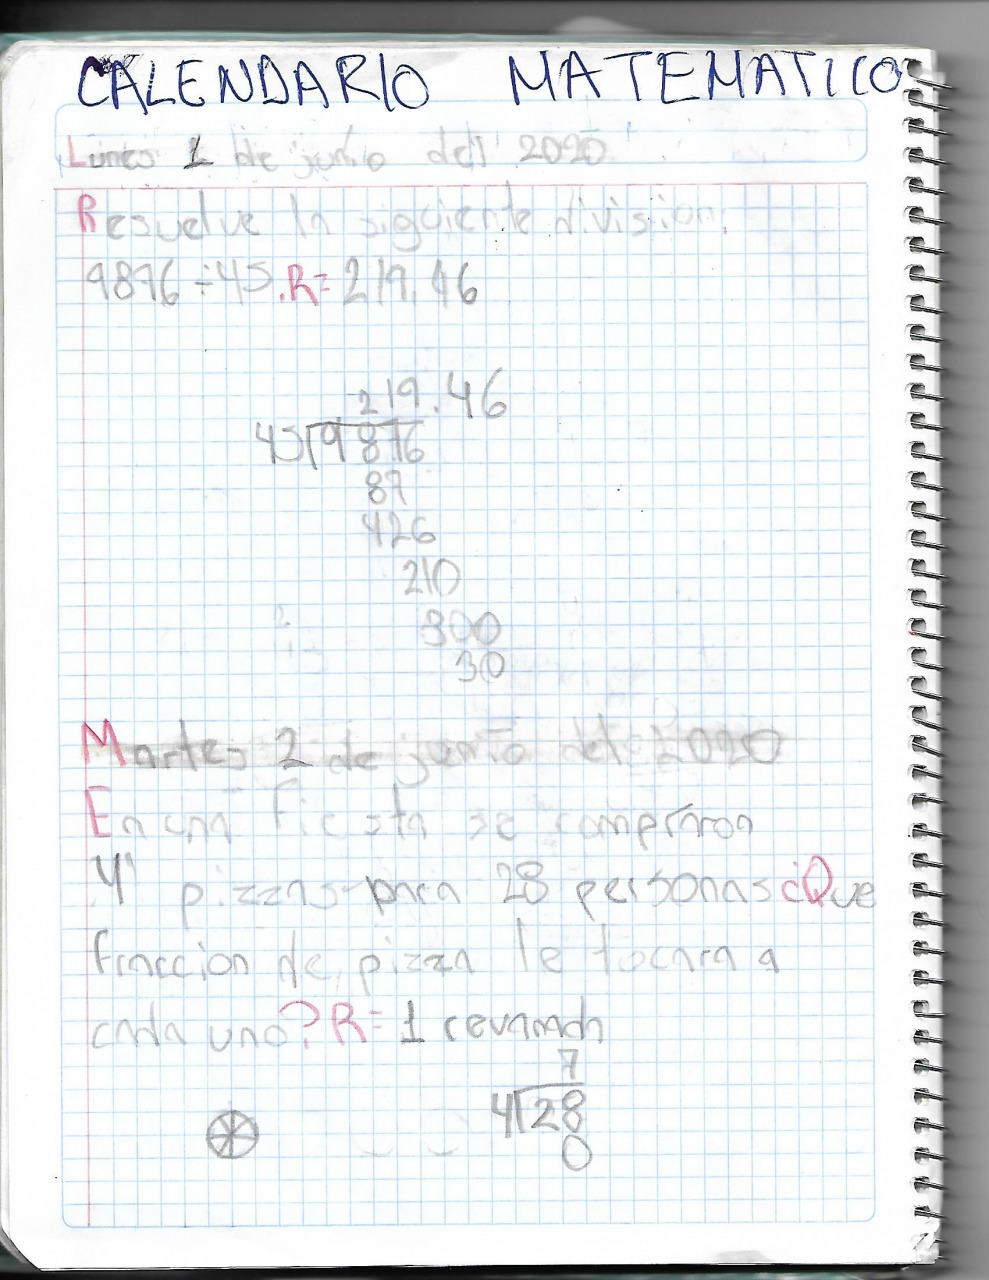 CALENDARIO MATEMATICO
Lunes 1 de junio del 2020
Resuelve la siguiente division.
9876÷45.R=219.46
219.46
45 9876
87
426
210
300
30
Martes 2 de junio del 2020
En una fiesta se compraron
4 pizzas para 28 personas ¿Que
fraccion de pizza le tocara a
cada uno? R=1 revanada
7
4 28
0